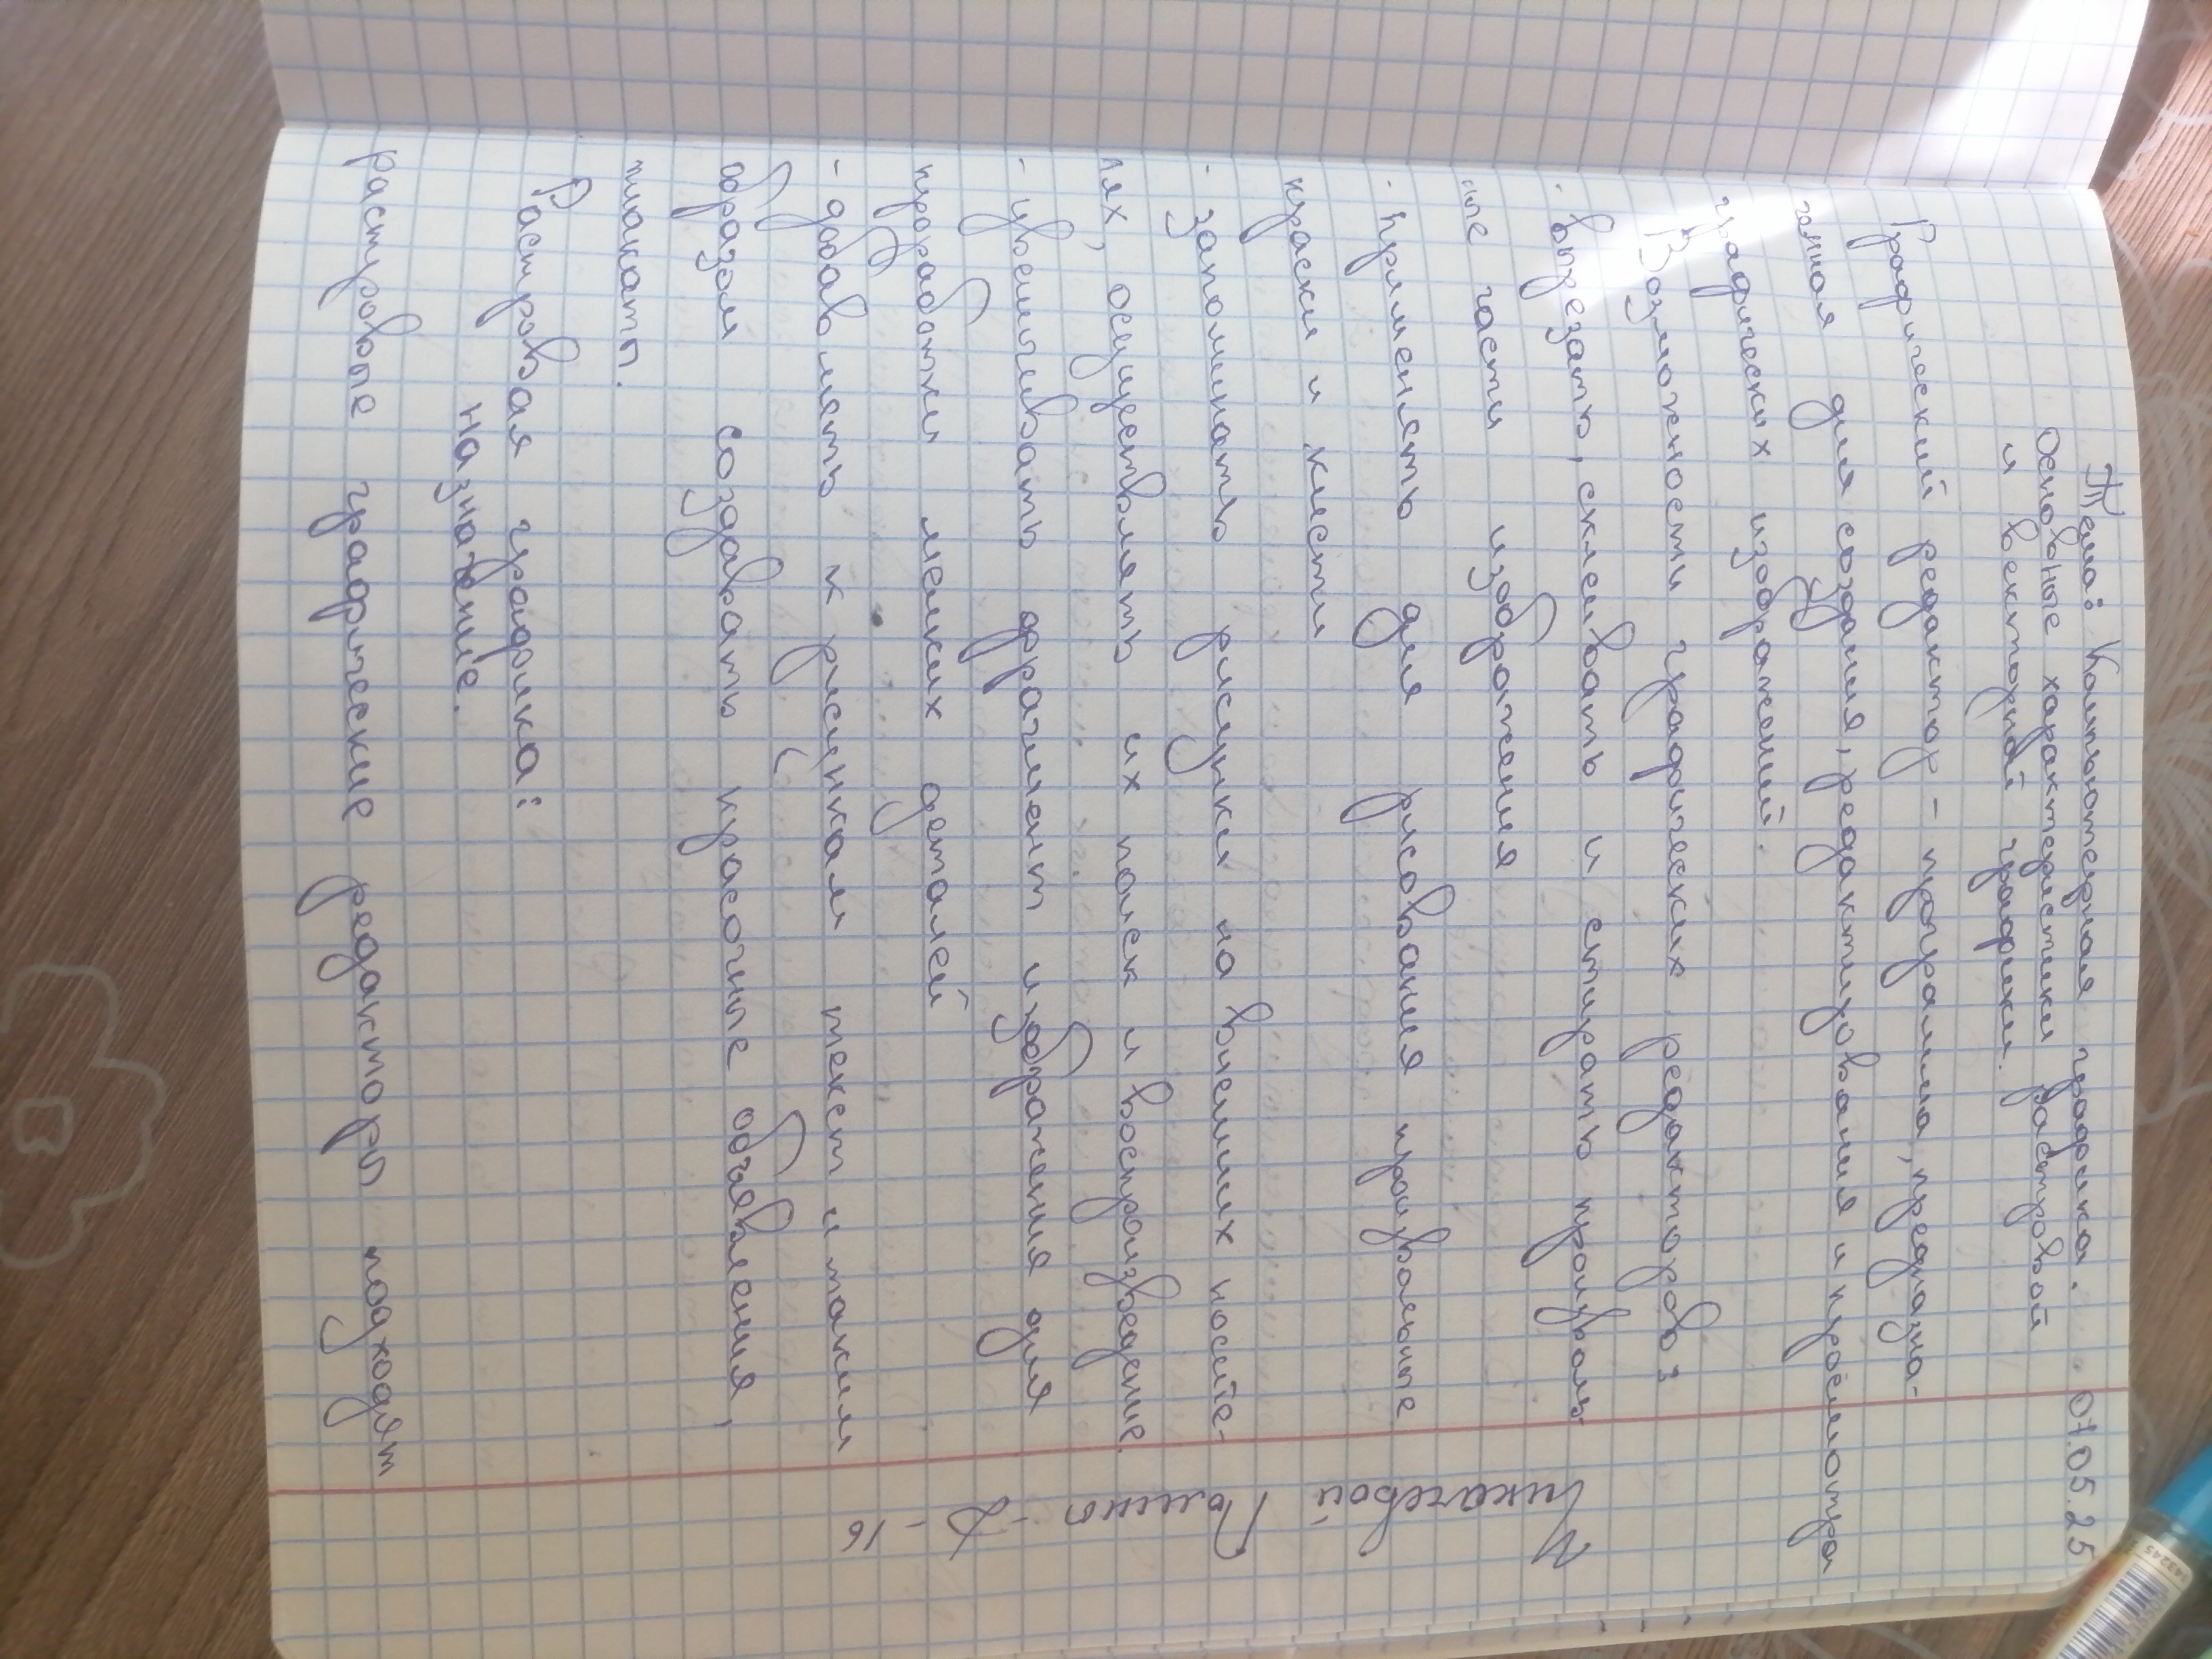 07.05.25
Тема: Компьютерная графика.
Основные характеристики растровой
и векторной графики.
Графический редактор - программа, предназна-
ченная для создания, редактирования и просмотра
графических изображений.
Возможности графических редакторов:
- вырезать, склеивать и стирать произволь-
ные части изображения
- применять для рисования произвольные
краски и кисти
- запоминать рисунки на внешних носите-
лях, осуществлять их поиск и воспроизведение.
- увеличивать фрагмент изображения для
проработки мелких деталей
- добавлять к рисункам текст и таким
образом создавать красочные объявления,
плакаты.
Растровая графика:
назначение.
растровые графические редакторы подходят
Полина - Д - 16